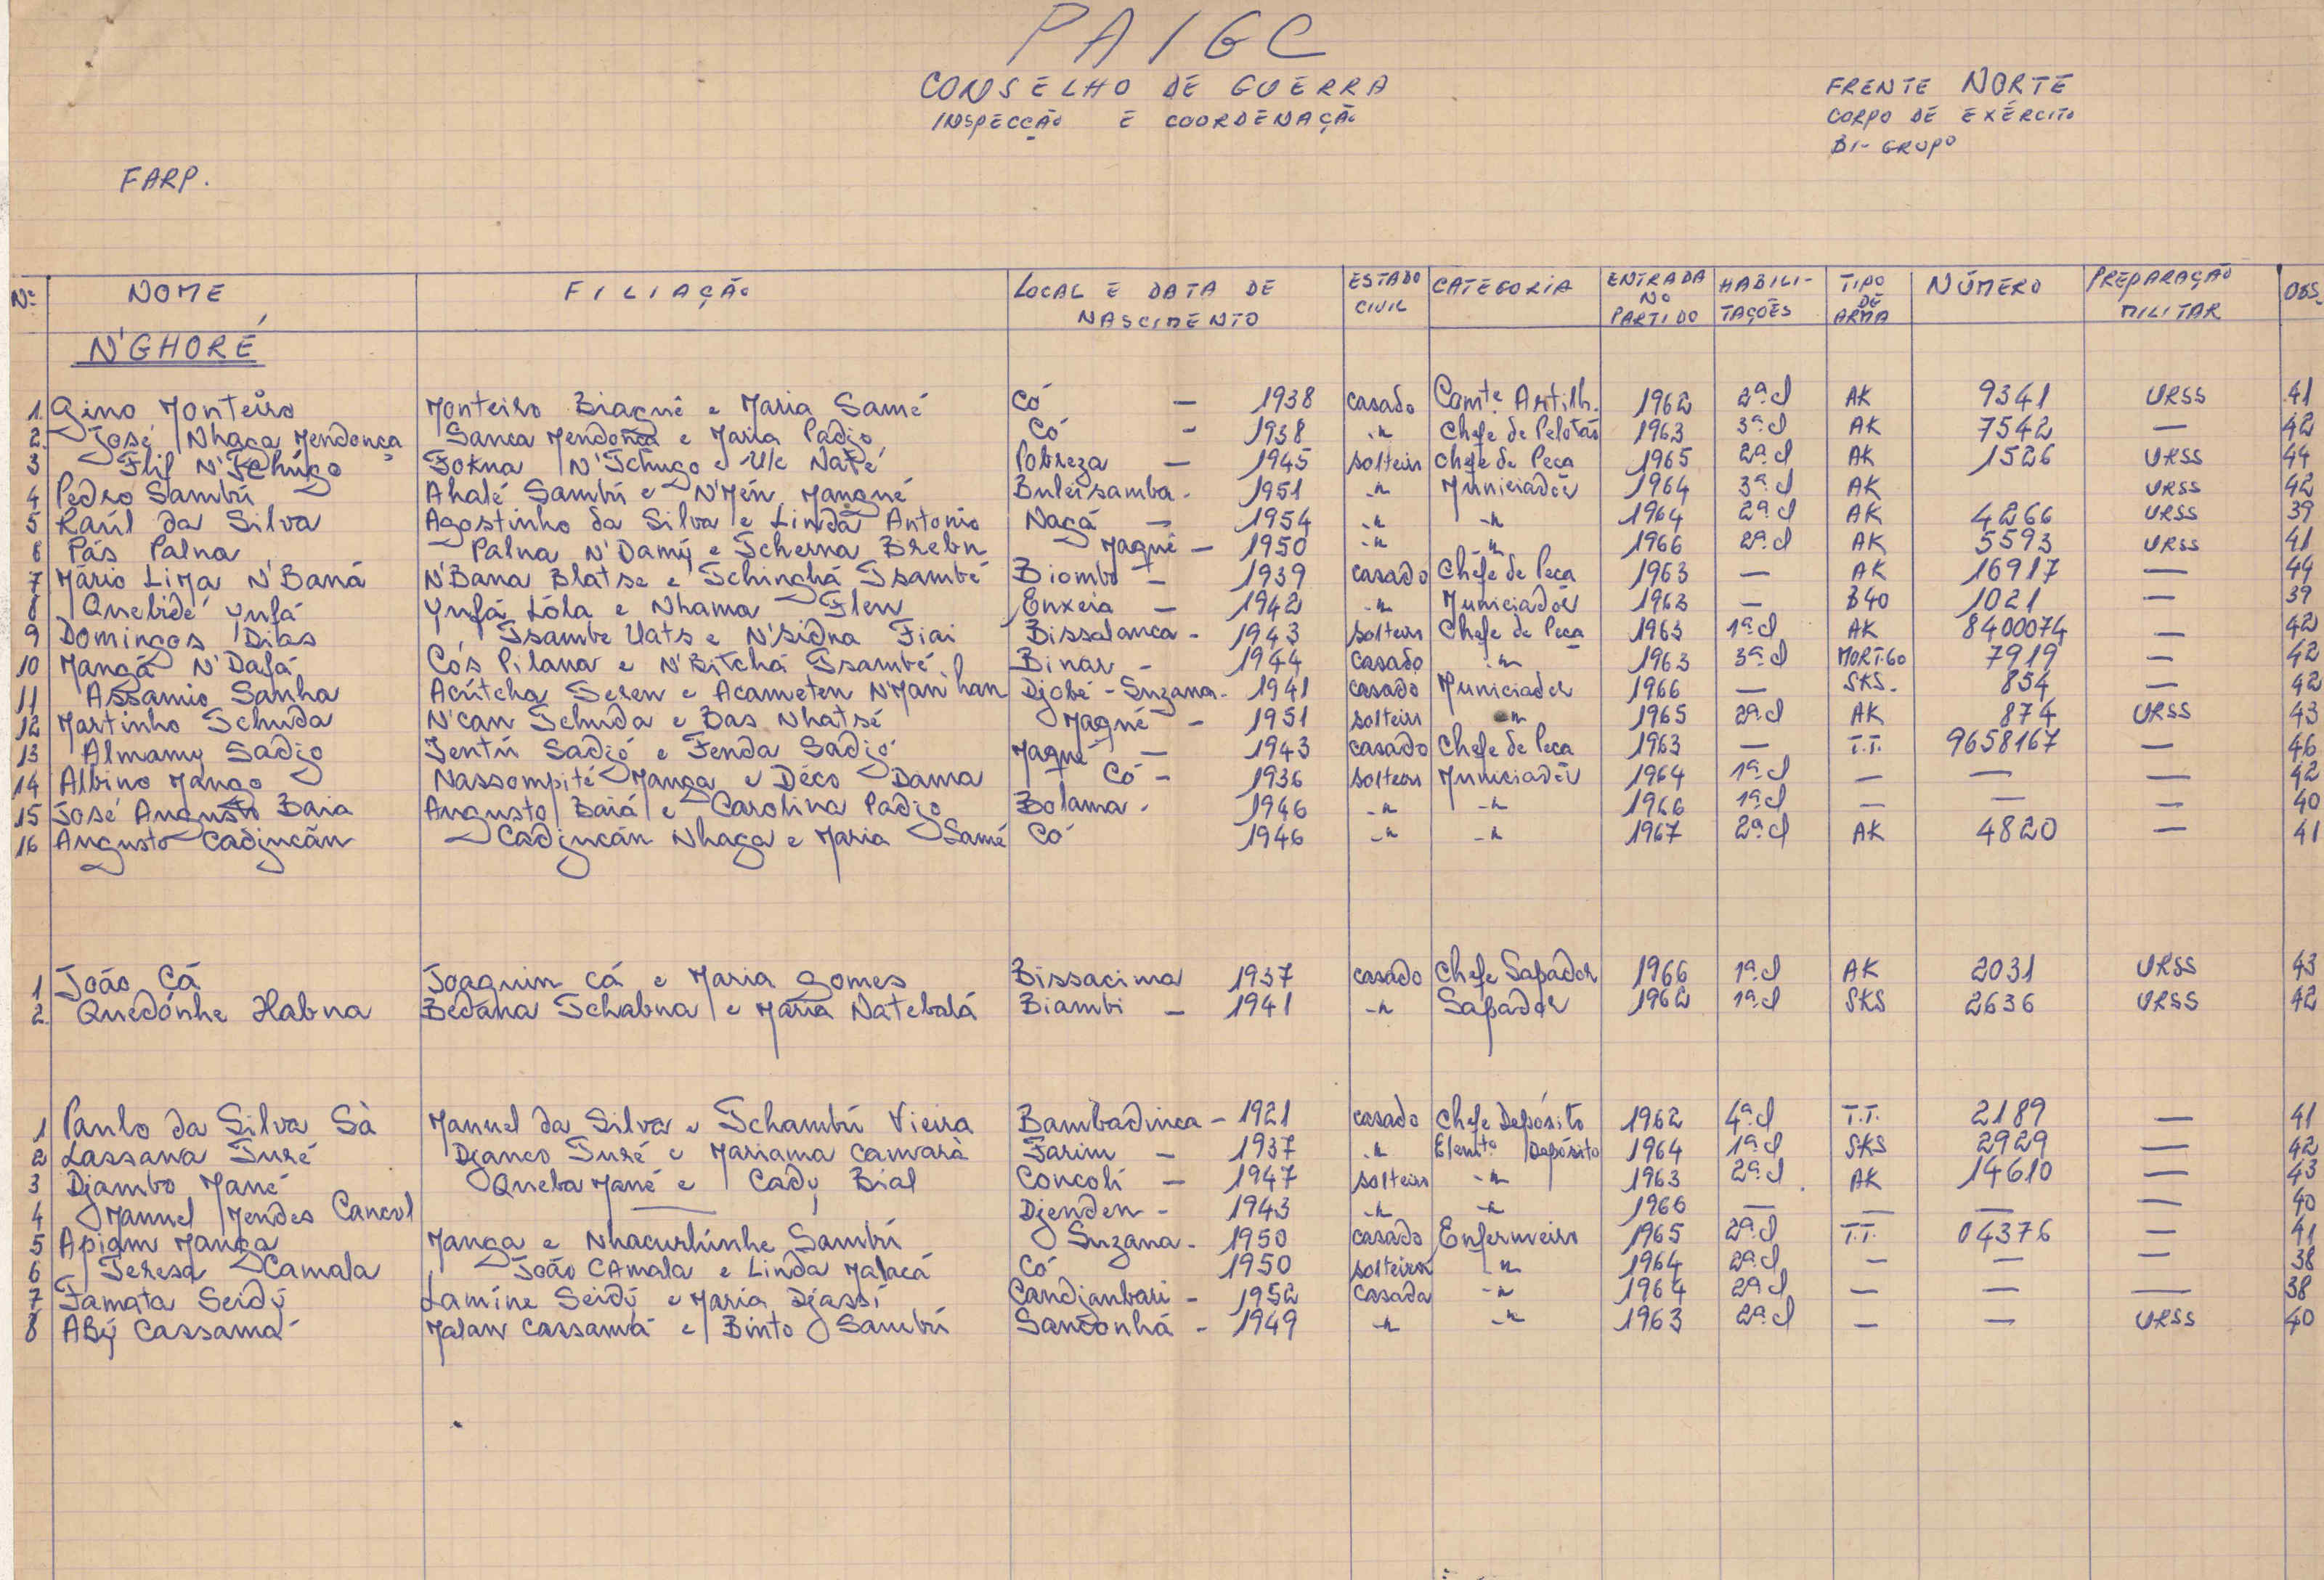 PAIGC
CONSELHO DE GUERRA
INSPECÇÃO E COORDENAÇÃO
FRENTE NORTE
CORPO DE EXÉRCITO
BI-GRUPO
FARP.
Nº NOME FILIAÇÃO LOCAL E DATA DE NASCIMENTO ESTADO CIVIL CATEGORIA ENTRADA NO PARTIDO HABILITAÇÕES TIPO DE ARMA NÚMERO PREPARAÇÃO MILITAR OBS.
N'GHORÉ
1 Gino Monteiro Monteiro Biagué e Maria Samé Có — 1938 casado Comte Artilh. 1962 2ª cl AK 9341 URSS 41
2 José Nhaga Mendonça Sanca Mendonça e Maria Padjo Có - 1938 -"- Chefe de Pelotão 1963 3ª cl AK 7542 — 42
3 Flif N'Tchúgo Tokna N'Tchugo e U/c Naté Pobreza — 1945 solteiro chefe de Peça 1965 2ª cl AK 1526 URSS 44
4 Pedro Sambú Ahalé Sambú e N'Mén Mangué Buleisamba - 1951 -"- Municiador 1964 3ª cl AK URSS 42
5 Raúl da Silva Agostinho da Silva e Linda Antonio Nagá — 1954 -"- -"- 1964 2ª cl AK 4266 URSS 39
6 Pás Palna Palna N'Damy e Tcherna Brebn Maqué — 1950 -"- -"- 1966 2ª cl AK 5593 URSS 41
7 Mário Lima N'Baná N'Bana Blatse e Tchinghá Tsambé Biombo — 1939 casado Chefe de Peça 1963 — AK 16917 — 44
8 Quebidé Yufá Yufá Lóla e Nhama Flen Enxeia — 1942 -"- Municiador 1963 — B40 1021 — 39
9 Domingos Dias Tsambe Uats e N'Sidna Fiai Bissalanca - 1943 solteiro Chefe de Peça 1963 1ª cl AK 8400074 — 42
10 Mangá N'Dafá Cós Pilana e N'Bitchá Tsambé Binar - 1944 casado -"- 1963 3ª cl MORT.60 7919 — 42
11 Assamio Sanha Acútcha Seren e Acameten N'Man'han Djobé - Suzana - 1941 casado Municiador 1966 — SKS. 854 — 42
12 Martinho Tchuda N'can Tchuda e Bas Nhatsé Maqué - 1951 solteiro -"- 1965 2ª cl AK 874 URSS 43
13 Almamy Sadjo Jentú Sadjó e Fenda Sadjó Maqué — 1943 casado Chefe de Peça 1963 — T.T. 9658167 — 46
14 Albino Mango Nassompité Manga e Déco Dama Có - 1936 solteiro Municiador 1964 1ª cl — — — 42
15 José Augusto Baia Augusto Baiá e Carolina Padjo Bolama - 1946 -"- -"- 1966 1ª cl — — — 40
16 Augusto Cadjucãn Cadjucán Nhaga e Maria Samé Có 1946 -"- -"- 1967 2ª cl AK 4820 — 41
1 João Cá Joaquim Cá e Maria Gomes Bissacima 1937 casado Chefe Sapador 1966 1ª cl AK 2031 URSS 43
2 Quedónhe Habna Bedana Tchabna e Maria Natebalá Biambi — 1941 -"- Sapador 1962 1ª cl SKS 2636 URSS 42
1 Paulo da Silva Sà Manuel da Silva e Tchambú Vieira Bambadinca - 1921 casado Chefe Depósito 1962 4ª cl T.T. 2189 — 41
2 Lassana Turé Djanco Turé e Mariama Camará Farim — 1937 -"- Elemto Depósito 1964 1ª cl SKS 2929 — 42
3 Djambo Mané Queba Mané e Cady Bial Concoli — 1947 solteiro -"- 1963 2ª cl AK 14610 — 43
4 Manuel Mendes Cancol — Djenden - 1943 -"- -"- 1966 — — — — 40
5 Apiam Manga Manga e Nhacurhinhe Sambú Suzana - 1950 casado Enfermeiro 1965 2ª cl T.T. 04376 — 41
6 Teresa Camala João CAmala e Linda Malacá Có 1950 solteira -"- 1964 2ª cl — — — 38
7 Famata Seidy Lamine Seidy e Maria Djassi Candjanbari - 1952 casada -"- 1964 2ª cl — — — 38
8 ABy Cassamá Malan Cassamá e Binto Sambú Sanconhá - 1949 -"- -"- 1963 2ª cl — — URSS 40